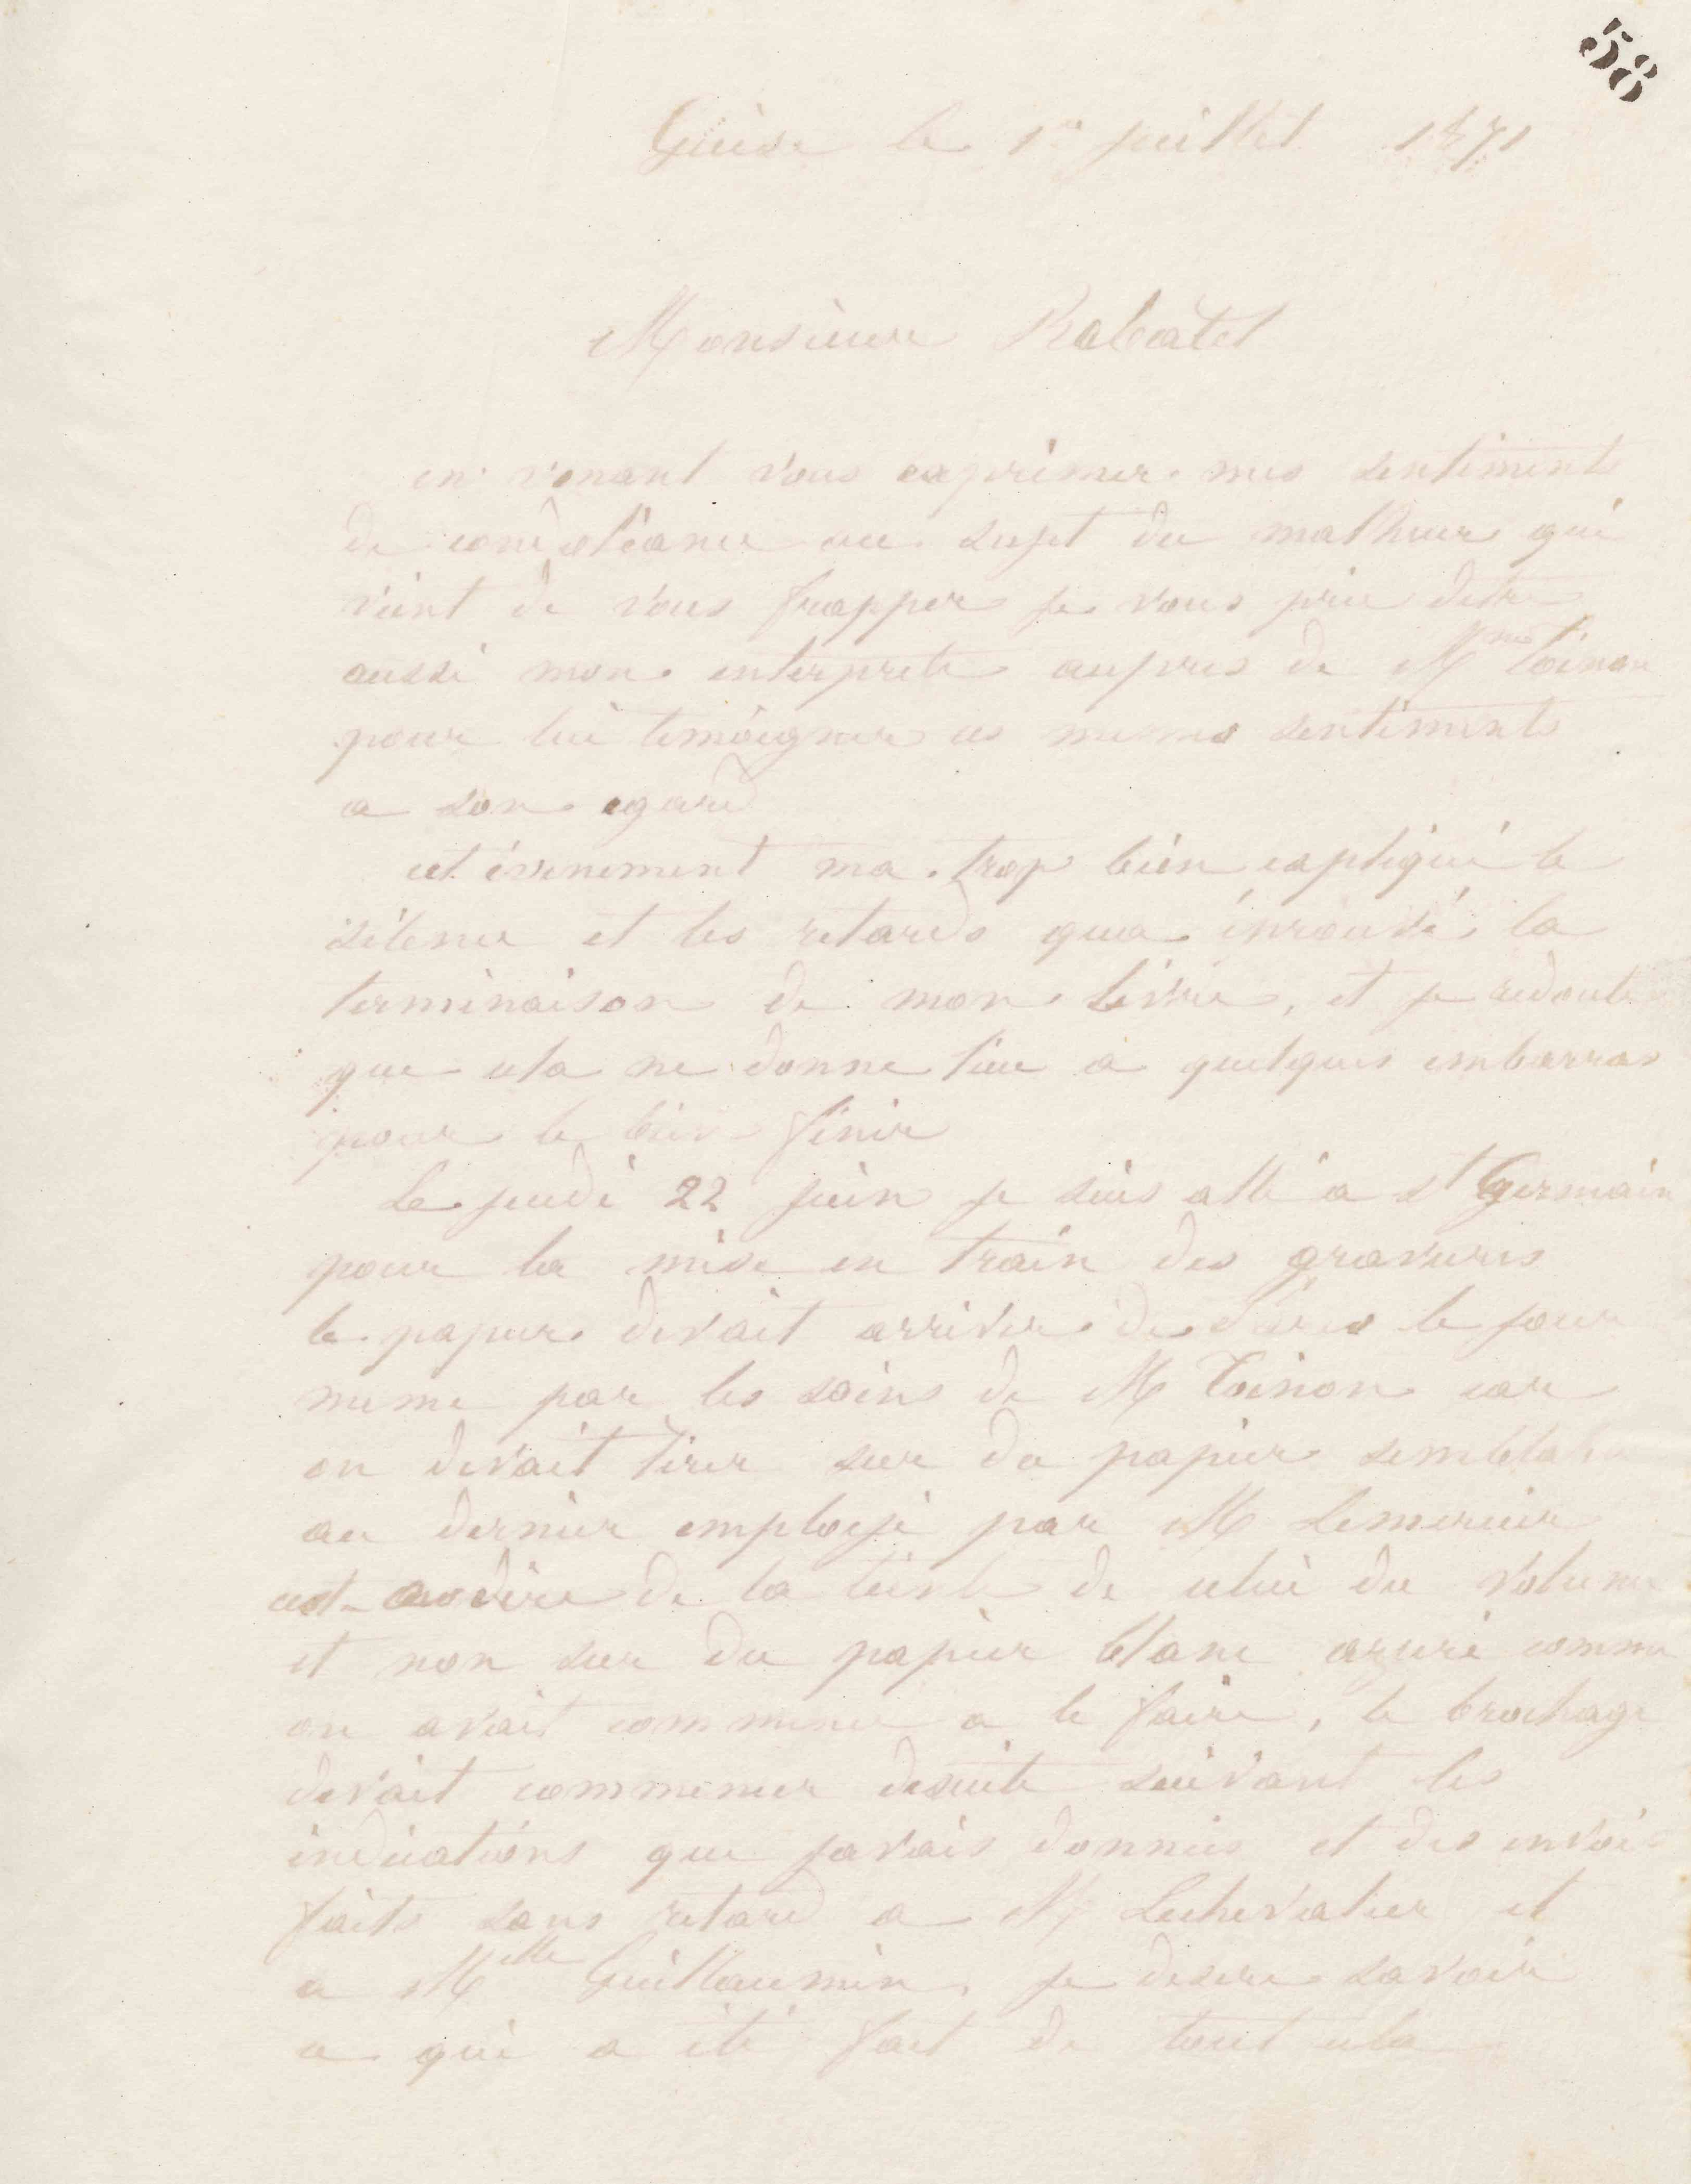 58
Guise le 1er juillet 1871
Monsieur Rabatel
en venant vous exprimer mes sentiments
de condoléance au sujet du malheur qui
vient de vous frapper je vous prie detre
aussi mon interprete aupres de Mme Toinon
pour lui temoigner ces memes sentiments
a son egard
cet évenement ma trop bien expliqué le
silence et les retards qua éprouvé la
terminaison de mon livre, et je redoute
que cela ne donne lieu a quelques embarras
pour le bien finir
Le jeudi 22 juin je suis allé a St Germain
pour la mise en train des gravures
le papier devait arriver de Paris le jour
meme par les soins de M Toinon car
on devait tirer sur du papier semblable
au dernier employé par M Lemercier
cest-a-dire de la teinte de celui du volume
et non sur du papier blanc azuré comme
on avait commencé a le faire, le brochage
devait commencer desuite suivant les
indications que javais données et des envois
faits sans retard a M Lechevalier et
a Melle Guillaumin, je desire savoir
ce qui a été fait de tout cela